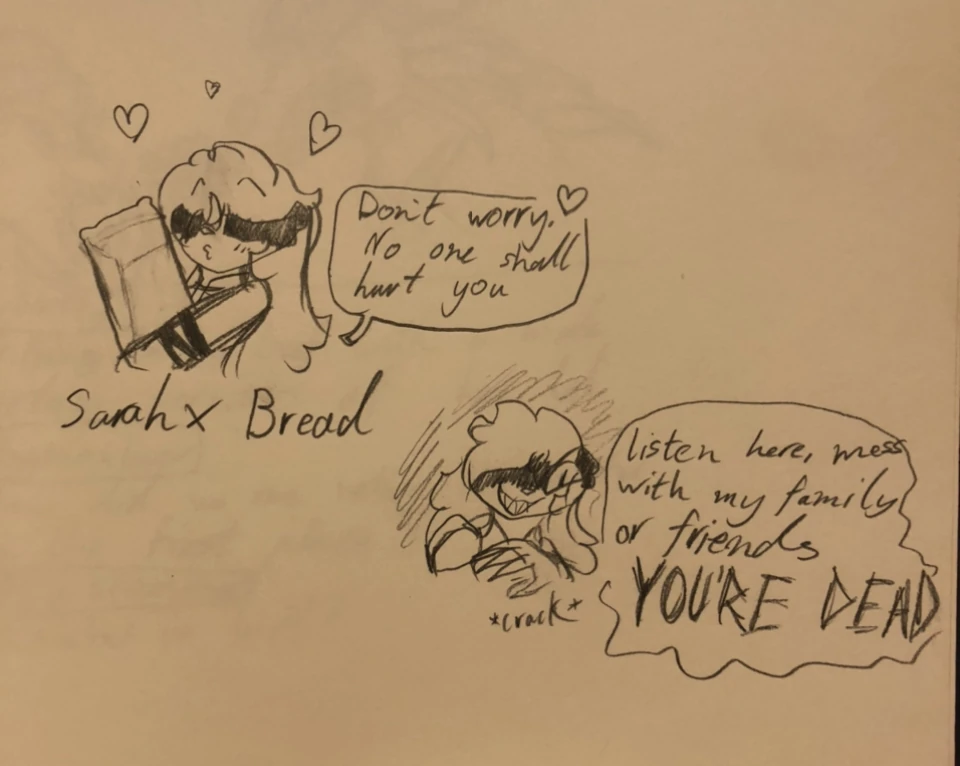 Don't worry.
No one shall
hurt you
Sarah x Bread
listen here, mess
with my family
or friends
YOU'RE DEAD
*crack*